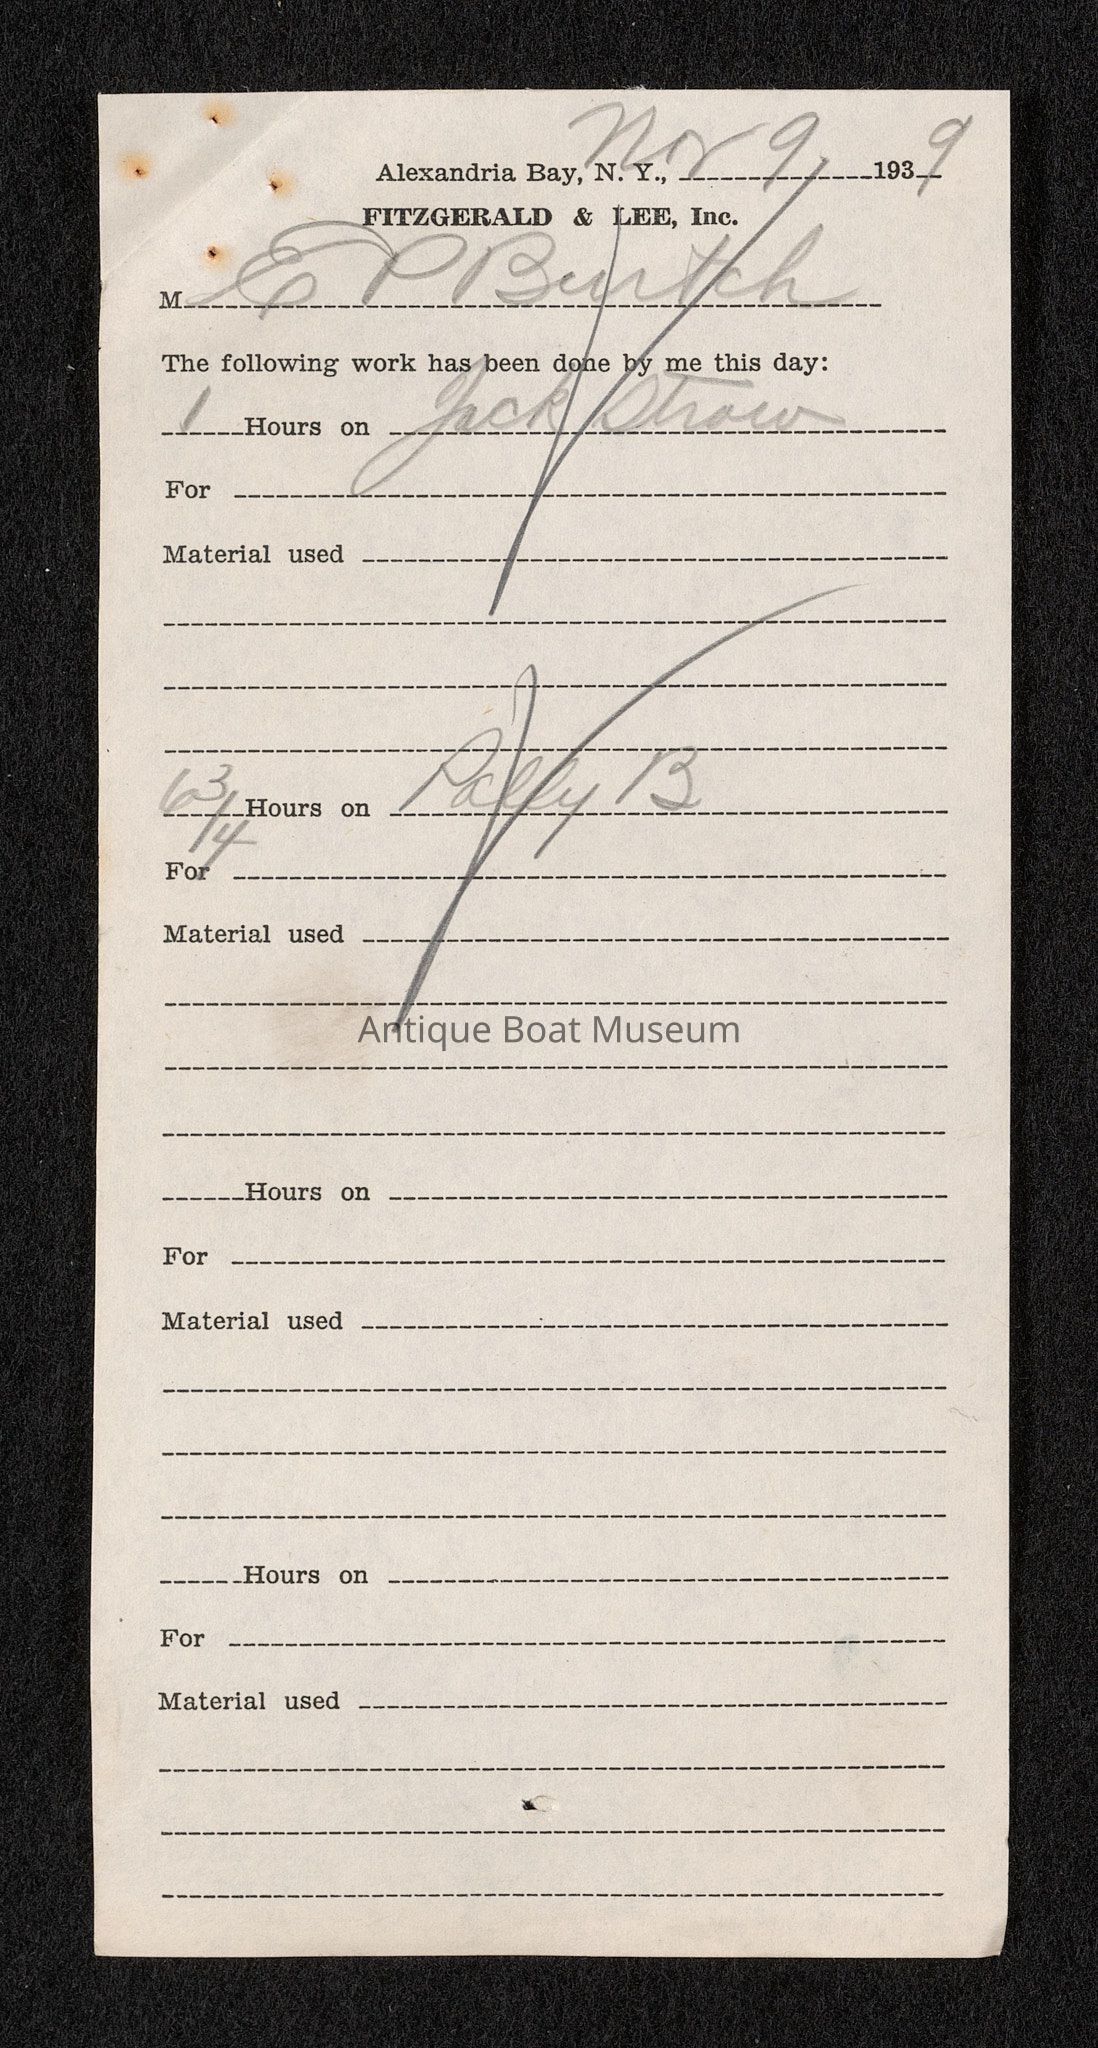 Alexandria Bay, N. Y., Nov 9, 1939
FITZGERALD & LEE, Inc.
M E P Burtch
The following work has been done by me this day:
1 Hours on Jack Straw
For
Material used
6 3/4 Hours on Polly B
For
Material used
Antique Boat Museum
Hours on
For
Material used
Hours on
For
Material used